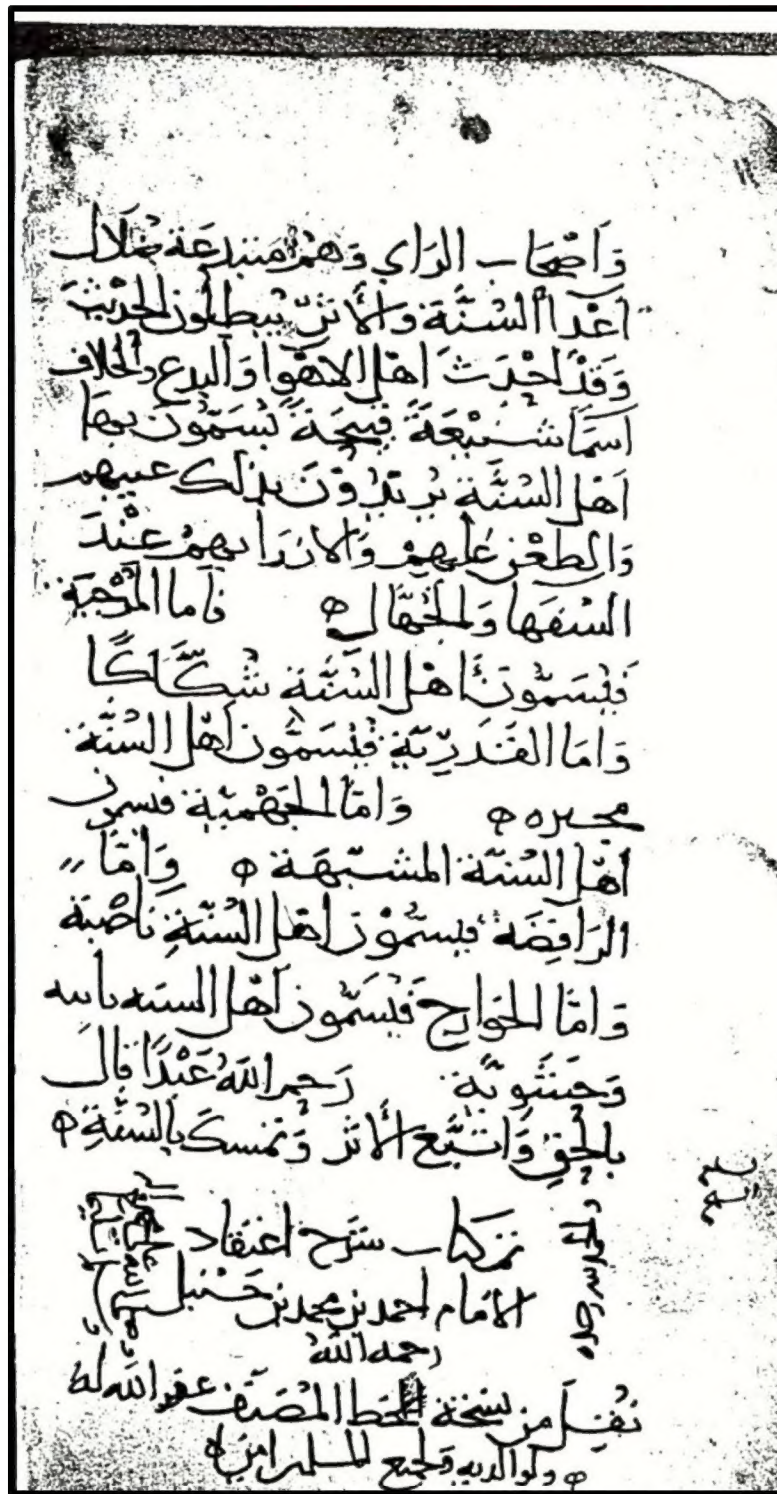 وَاَصْحَاب الرَاي وَهُمْ مبتدعَة ضلَال
اَعْدآ السُنَّة وَالأثر يُبطلُون الحديثَ
وَقَدْ احْدَثَ اَهْل الاهْوا وَالبدع والخلاف
اسمَآ شنيْعَة قبيحَةً يُسَمّونَ بِهَا
اَهْل السُنَّة يُريْدُوْنَ بذلك عيبهم
وَالطعْن عَليهمْ وَالازرَا بهمْ عنْدَ
السُفهَا وَالجُهّال ه فَاما المُرْجيَة
فَيُسَمّونَ اَهْل السُنَّة شُكَّاكًا
وَامَا القَدَرِيّة فيُسَمُّون اَهْل السُنَّة
مجبره ه وَامَّا الجَهْميّة فيسمون
اَهْل السُنّة المشبّهَة ه وَامَّا
الرَافِضَة فيسمّوْن اَهْل السُنّةِ نَاصْبَة
وَامَّا الخوَارج فَيُسَمّون اَهْل السنه نابته
وَحَشْويّة رَحم اللهُ عَبْدًا قَالَ
بالحَقِ وَاتبَّع الأثر وَتمَسكَ بالسُنّةِ ه
تم كتاب شرَح اعتقاد
الامَام احمد بن محمد بن حَنْبل
رحمه اللهُ
والحمد لله وحده
نُقِلَ من نسخة بخط المُصَنِّف عفَى الله لهُ
ولوالديه ولجميع المسلمين امين ه